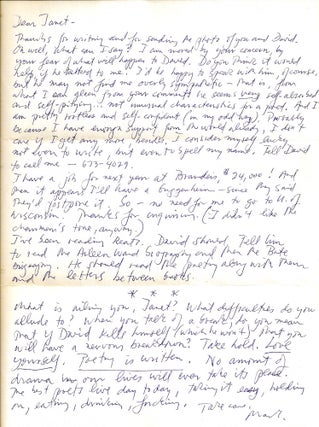 Dear Janet -
Thanks for writing and for sending the photo of you and David.
Oh well, what can I say? I am moved by your concern, by
your fear of what will happen to David. Do you think it would
help if he talked to me? I'd be happy to speak with him, of course,
but he may not find me overly sympathetic - that is - from
what I can glean from your comments he seems very self absorbed
and self-pitying... not unusual characteristics for a poet. And I
am pretty ruthless and self confident (in my odd way). Probably
because I have enough support from the world already, I don't
care if I get any more kinder. I consider myself lucky
not even to write, but even to spell my name. Tell David
to call me - 675-4029.
I have a job for next year at Brandeis, $24,000! And
then it appears I'll have a Guggenheim - since they said
they'd postpone it. So - no need for me to go to U. of
Wisconsin! Thanks for enquiring. (I didn't like the
chairman's tone, anyway.)
I've been reading Keats. David should. Tell him
to read the Aileen Ward biography and then the Bate
biography. He should read the poetry along with them
and the letters between books.
* * *
What is ailing you, Janet? What difficulties do you
allude to? When you talk of a break, do you mean
that if David kills himself (which he won't) that you
will have a nervous breakdown? Take hold. Love
yourself. Poetry is written. No amount of
drama in our lives will ever take its place.
The best poets live day to day, taking it easy, holding
on, eating, drinking, fucking. Take care,
Mark.